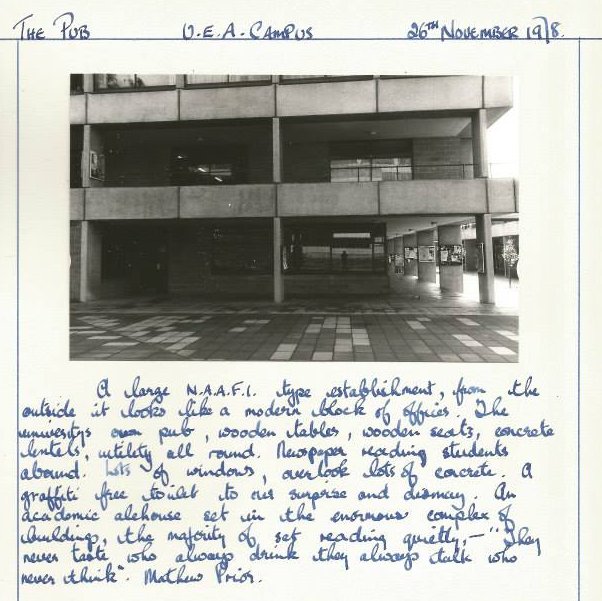 The Pub U.E.A. Campus 26TH November 1978.
A large N.A.A.F.I. type establishment, from the
outside it looks like a modern block of offices. The
univesitys own pub, wooden tables, wooden seats, concrete
lentels, utility all round. Newspaper reading students
abound. Lots of windows, overlook lots of concrete. A
graffiti free toilet to our surprise and dismay. An
academic alehouse set in the enormous complex of
buildings, the majority of set reading quietly, – "They
never taste who always drink they always talk who
never think". Mathew Prior.